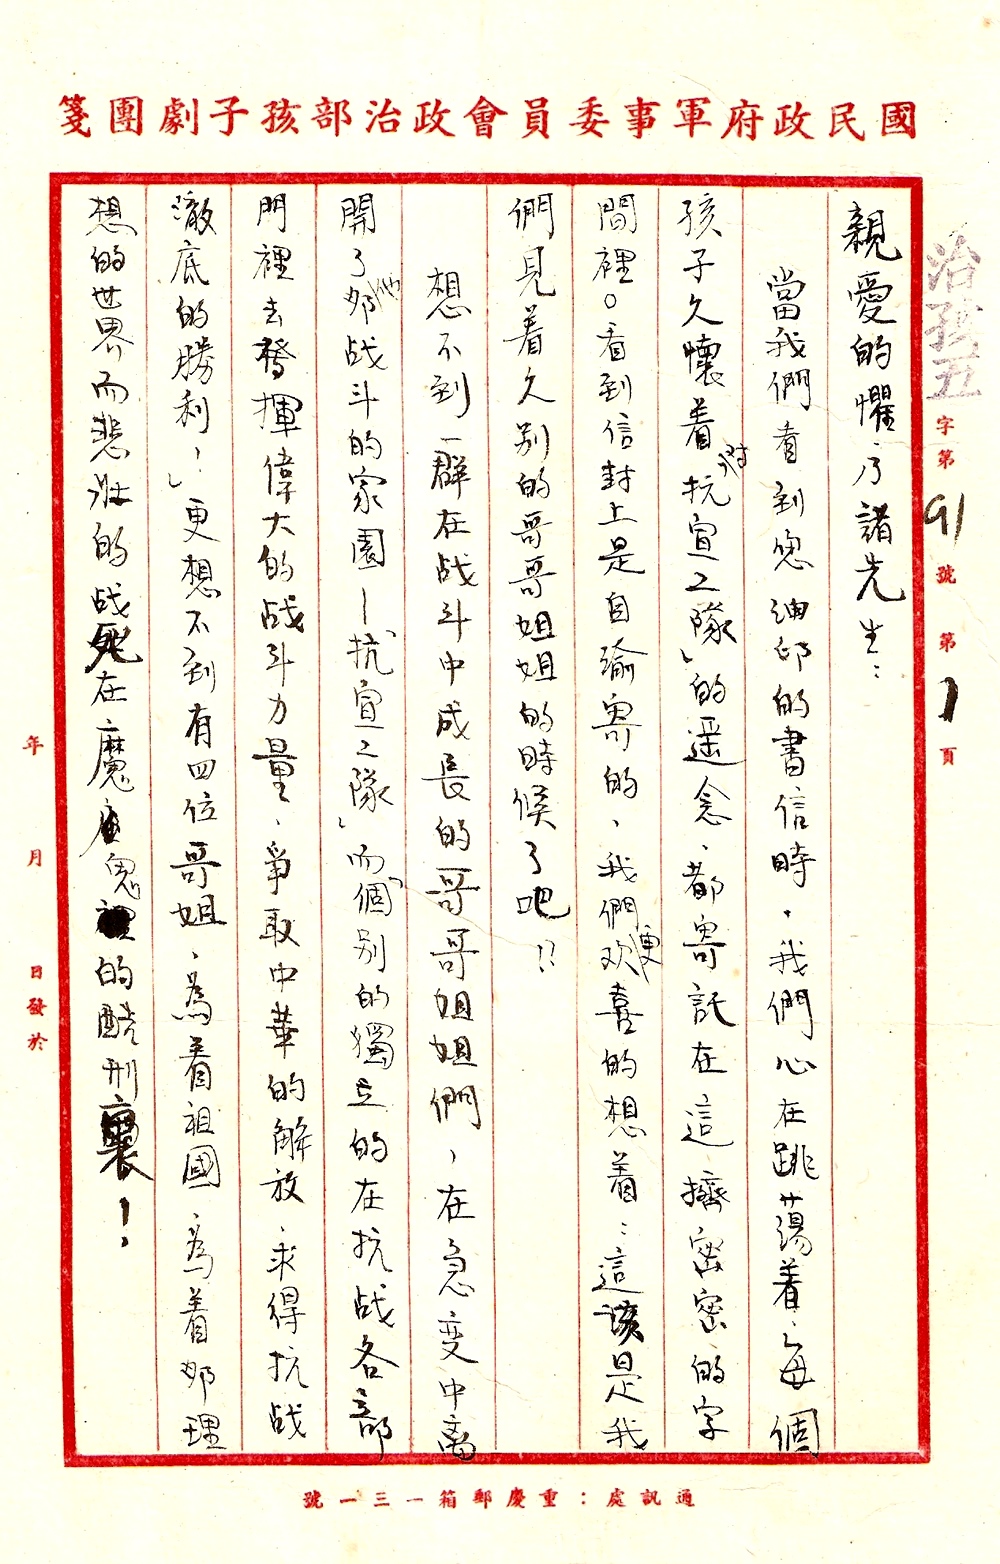 國民政府軍事委員會政治部孩子劇團箋
治孩丑字第91號 第1頁
親愛的懼、乃諸先生：
當我們看到您油印的書信時，我們心在跳蕩着，每個
孩子久懷着對“抗宣二隊”的遥念，都寄託在這擠密密的字
間裡。看到信封上是自渝寄的，我們更欢喜的想着：這该是我
們見着久别的哥哥姐姐的時候了吧！！
想不到一群在战斗中成長的哥哥姐姐們，在急变中离
開了他那战斗的家園—“抗宣二隊”而“個别的獨立的在抗战各部
門裡去發揮偉大的战斗力量，爭取中華的解放，求得抗战
澈底的勝利！”更想不到有四位哥姐，為着祖國，為着那理
想的世界而悲壯的战死在魔鬼的酷刑裏！
年 月 日發於
通訊處：重慶郵箱一三一號